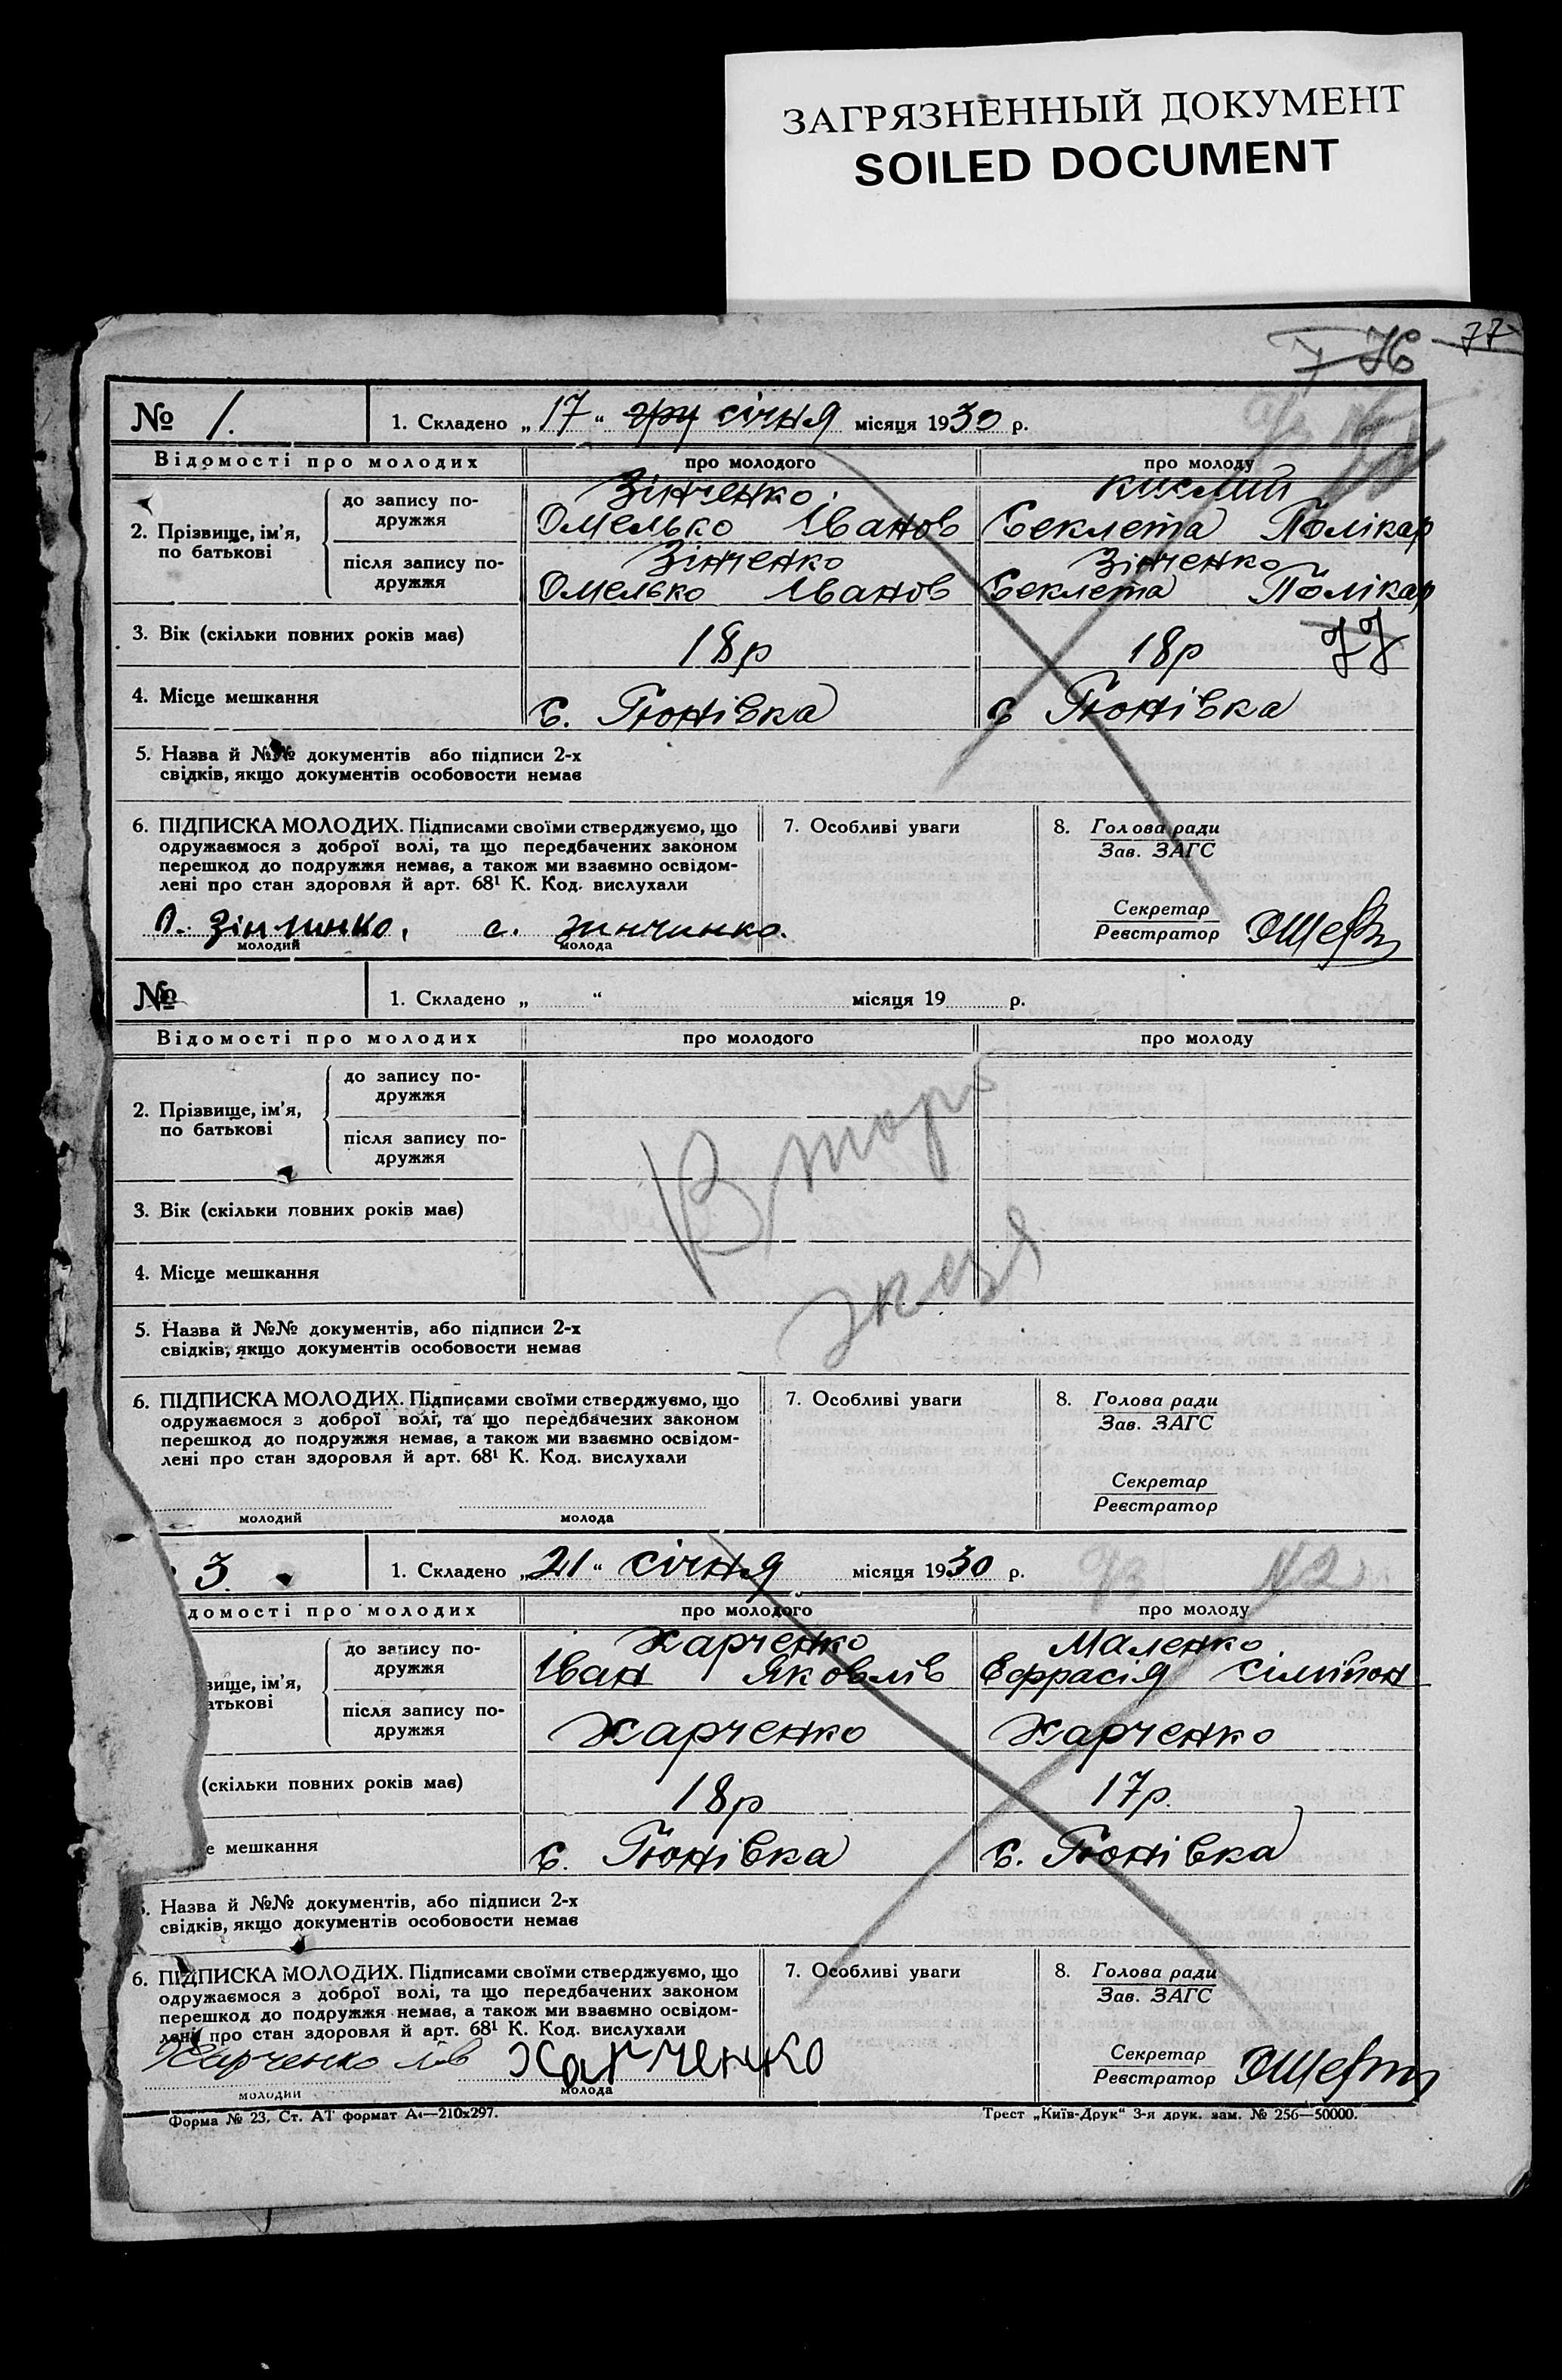 ЗАГРЯЗНЕННЫЙ ДОКУМЕНТ
SOILED DOCUMENT
76 77
№ 1. 1. Складено „17“ гру січня місяця 1930 р.
Відомості про молодих про молодого про молоду
2. Прізвище, ім’я, по батькові
до запису по-
дружжя
Зінченко Кислий
Омелько Іванов Секлета Полікар
після запису по-
дружжя
Зінченко Зінченко
Омелько Іванов Секлета Полікар
3. Вік (скільки повних років має) 18р 18р 77
4. Місце мешкання с. Гюнівка с Гюнівка
5. Назва й №№ документів або підписи 2-х
свідків, якщо документів особовости немає
6. ПІДПИСКА МОЛОДИХ. Підписами своїми стверджуємо, що
одружаємося з доброї волі, та що передбачених законом
перешкод до подружжя немає, а також ми взаємно освідом-
лені про стан здоровля й арт. 68¹ К. Код. вислухали
7. Особливі уваги
8. Голова ради
Зав. ЗАГС
Секретар
Реєстратор
с. зинчинко.
молодий молода
№ 1. Складено „ “ місяця 19 р.
Відомості про молодих про молодого про молоду
2. Прізвище, ім’я,
по батькові
до запису по-
дружжя
після запису по-
дружжя
3. Вік (скільки повних років має)
4. Місце мешкання
Втор
экз
5. Назва й №№ документів, або підписи 2-х
свідків, якщо документів особовости немає
6. ПІДПИСКА МОЛОДИХ. Підписами своїми стверджуємо, що
одружаємося з доброї волі, та що передбачених законом
перешкод до подружжя немає, а також ми взаємно освідом-
лені про стан здоровля й арт. 68¹ К. Код. вислухали
7. Особливі уваги
8. Голова ради
Зав. ЗАГС
Секретар
Реєстратор
молодий молода
3. 1. Складено „21“ січня місяця 1930 р. N2
домості про молодих про молодого про молоду
вище, ім’я,
атькові
до запису по-
дружжя
Харченко Маленко
Іван Яковлів Ефрасія Сілміон
після запису по-
дружжя
Харченко Харченко
(скільки повних років має) 18р 17р.
е мешкання с. Гюнівка с. Гюнівка
5. Назва й №№ документів, або підписи 2-х
свідків, якщо документів особовости немає
6. ПІДПИСКА МОЛОДИХ. Підписами своїми стверджуємо, що
одружаємося з доброї волі, та що передбачених законом
перешкод до подружжя немає, а також ми взаємно освідом-
лені про стан здоровля й арт. 68¹ К. Код. вислухали
7. Особливі уваги
8. Голова ради
Зав. ЗАГС
Секретар
Реєстратор
Харченко Харченко
молодий молода
Форма № 23. Ст. АТ формат А₄—210х297. Трест „Київ-Друк“ 3-я друк. зам. № 256—50000.